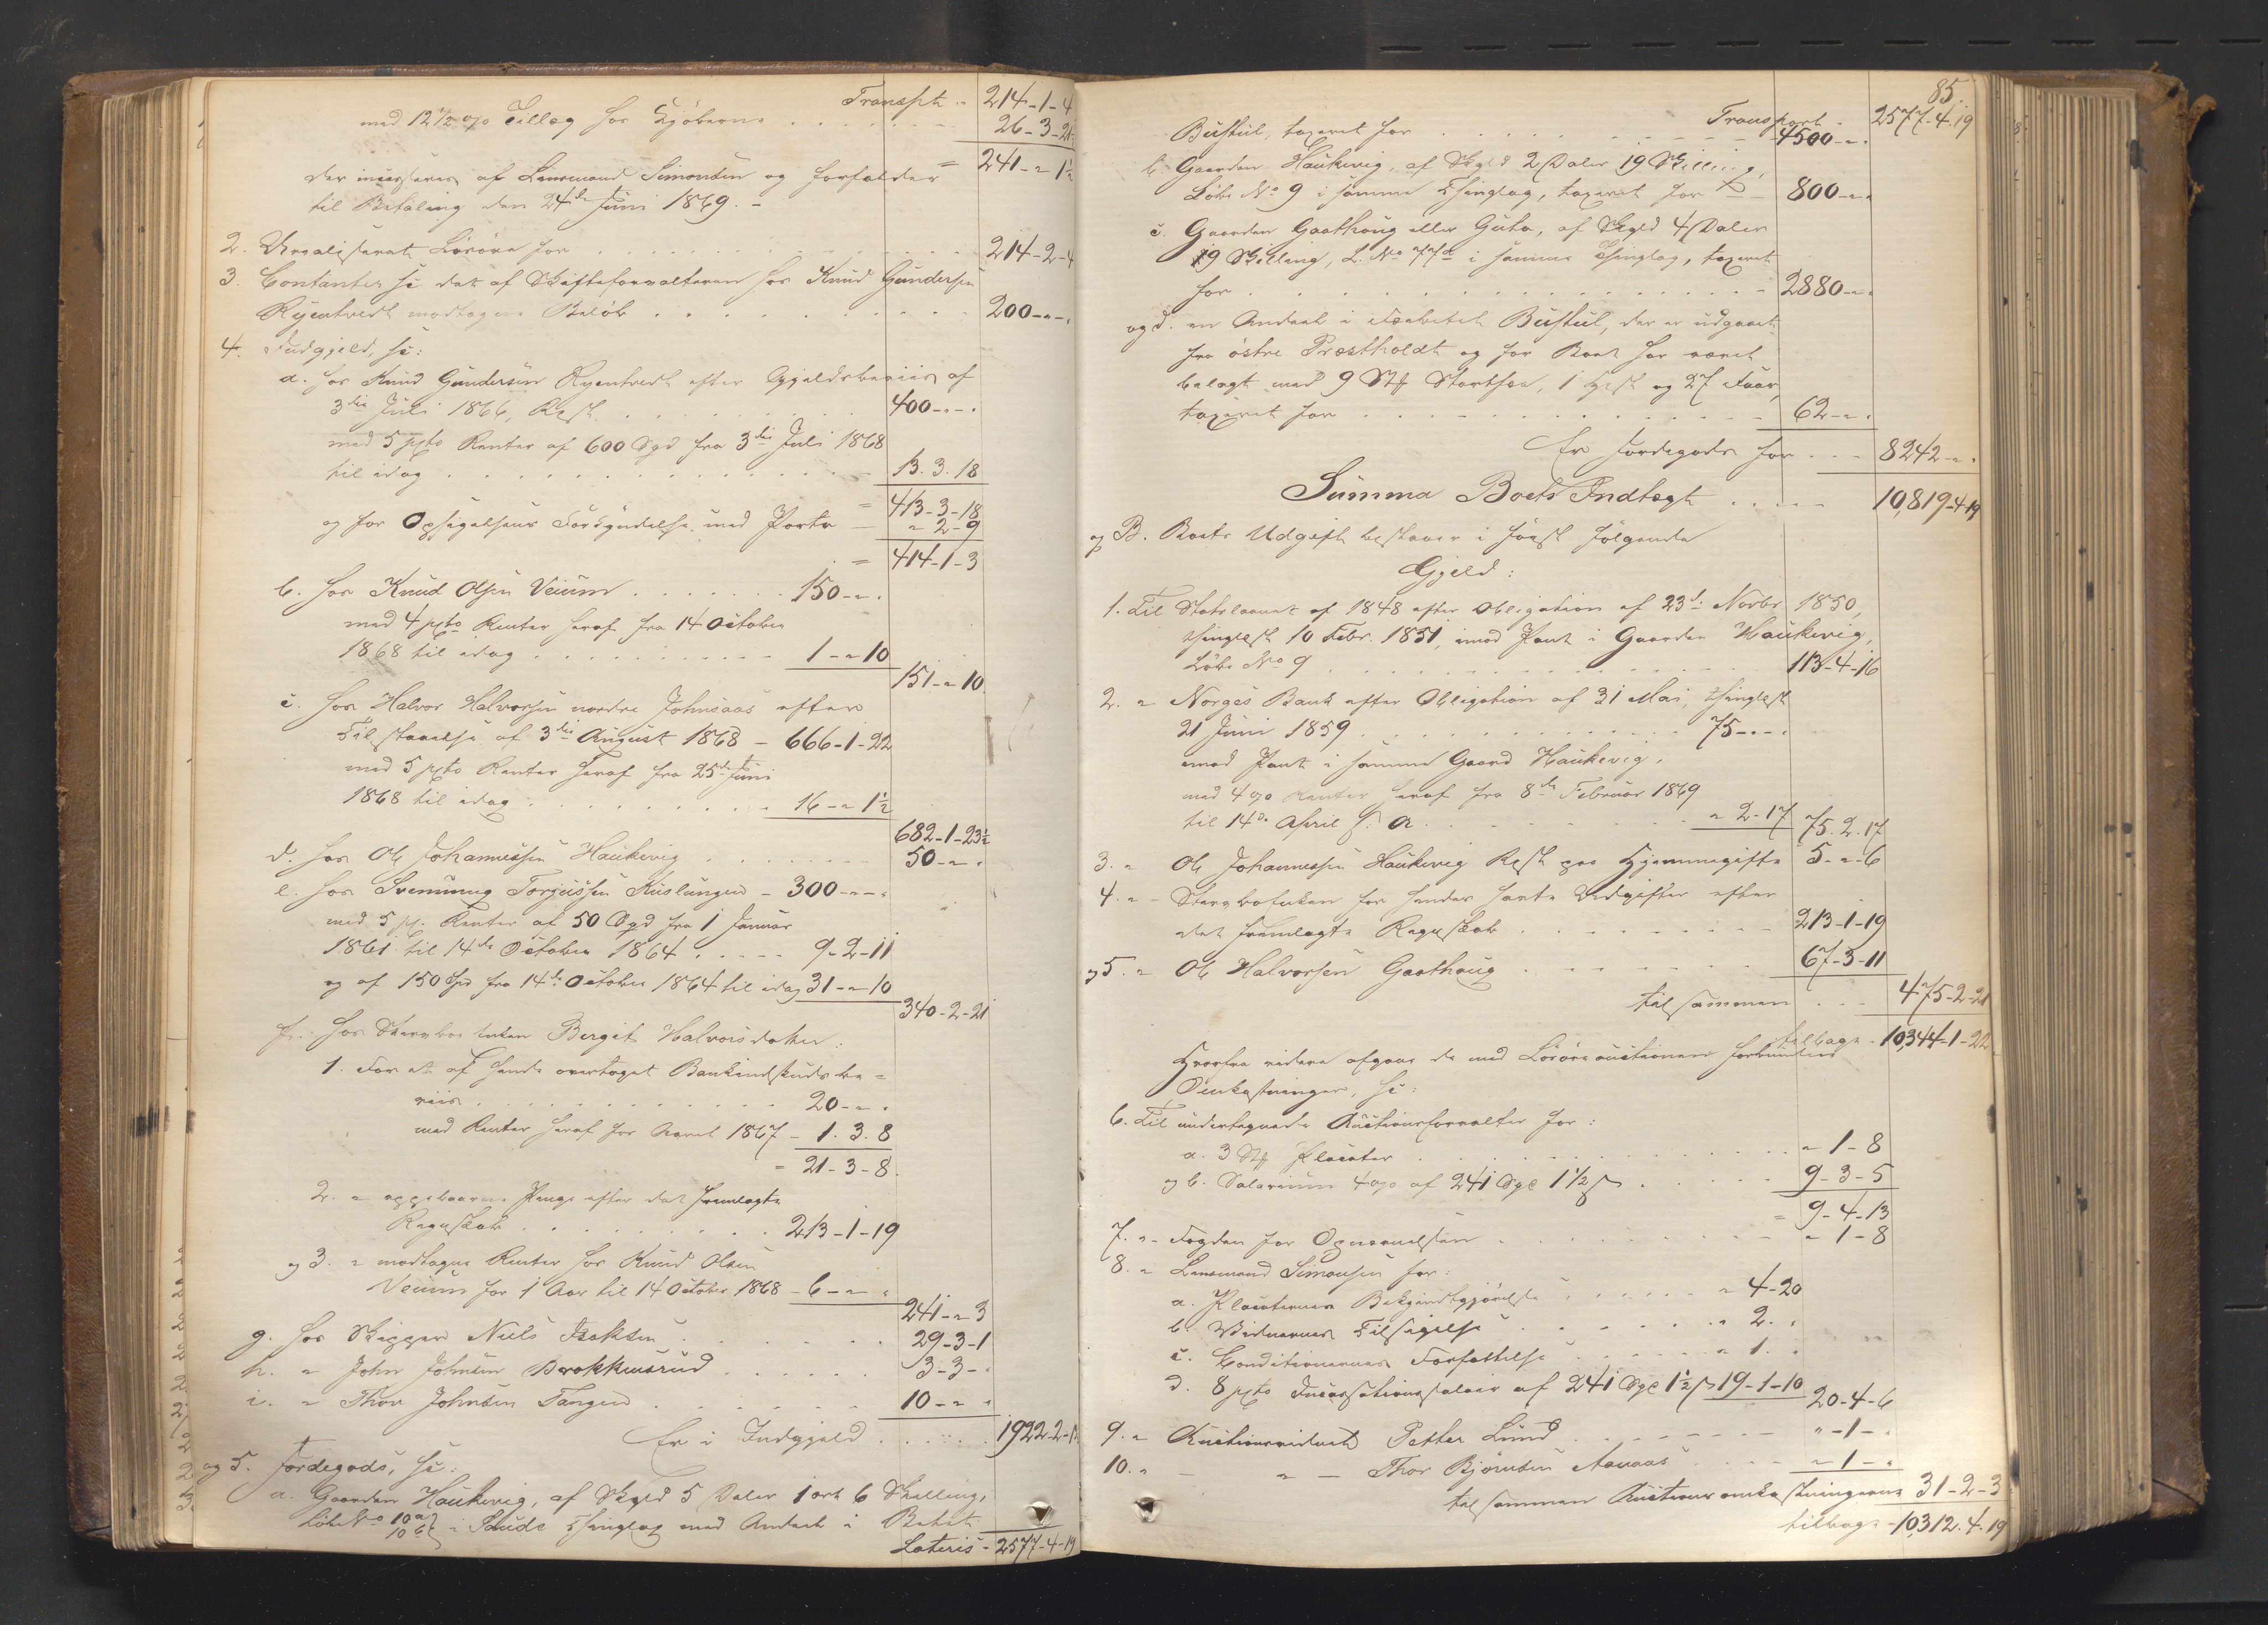 Transpt. 214-1-4
med 12 1/2 o/o Tillæg hos Kjøberne 26-3-21
= 241-"-1 1/2
der incasseres af Lensmand Simonsen og forfalder
til Betaling den 24de Juni 1869.-
2. Urealiserede Løsøre for 214-2-4
3. Contanter hc: det af Skifteforvalteren hos Knud Gundersen
Ryentvedt modtagne Beløb 200-"-"
4. Indgjeld, hc:
a. hos Knud Gundersen Ryentvedt efter Gjeldsbeviis af
3die Juli 1866, Rest 400-"-"
med 5 pCto Renter af 600 Spd fra 3die Juli 1868
til idag 13. 3. 18
= 413-3-18
og for Opsigelsens Forkyndelse med Porto " 2-9
= 414-1-3
b. hos Knud Olsen Veium 150-"-"
med 4 pCto Renter heraf fra 14 October
1868 til idag 1-"-10
151-"-10
c. hos Halvor Halvorsen nordre Johnsaas efter
Tilstaaelse af 3die August 1868 - 666-1-22
med 5 pCto Renter heraf fra 25de Juni
1868 til idag 16-"-1 1/2
682-1-23 1/2
d. hos Ole Johannessen Haukevig 50-"-"
e. hos Svennung Torjussen Kuslungen - 300-"-"
med 5 pC. Renter af 50 Spd fra 1 Januar
1861 til 14de October 1864 9-2-11
og af 150 Spd fra 14de October 1864 til idag 31-"-10
340-2-21
f. hos Stervboenken Bergit Halvorsdatter:
1. For et af hende overtaget Bankindskudsbe=
viis 20-"-"
med Renter heraf for Aaret 1867 - 1. 3. 8
= 21-3-8
2. " oppebaarne Penge efter det fremlagte
Regnskab 213-1-19
og 3. " modtagne Renter hos Knud Olsen
Veium for 1 Aar til 14 October 1868 - 6-"-"
241-"-3
g. hos Skipper Niels Isaksen 29-3-1
h. " John Johnsen Brokkeusrud 3-3-"
i. " Thor Johnsen Tangen 10-"-"
Er i Indgjeld 1922-2-
og 5. Jordegods, hc:
a. Gaarden Haukevig, af Skyld 5 Daler 1 ort 6 Skilling,
Løbe No 10 a 10 b i Thinglag med Andeel i
Lateris - 2577-4-19
85.
Transport 2577-4-19
Bustul, taxeret for 4500-"-
b. Gaarden Haukevig, af Skyld 2 Daler 19 Skilling,
Løbe No 9 i samme Thinglag, taxeret for 800-"-
c. Gaarden Gaathoug eller Guta, af Skyld 4 Daler
19 Skilling, L. No 77 i samme Thinglag, taxeret
for 2880-"-
og d. en Andeel i Bustul, der er udgaaet
fra østre Præstholdt og for Boet har været
belagt med 9 Stk Storfæ, 1 Hest og 27 Faar,
taxeret for 62-"-
Er Jordegods for 8242-"-
Summa Boets Indtægt 10,819-4-19
og B. Boets Udgift bestaaer i først følgende
Gjeld:
1. Til Statslaanet af 1848 efter Obligation af 23d: Novbr 1850,
thinglæst 10 Febr. 1851, imod Pant i Gaarden Haukevig,
Løbe No 9 113-4-16
2. " Norges Bank efter Obligation af 31 Mai, thinglæst
21 Juni 1859 75-"-"
imod Pant i samme Gaard Haukevig,
med 4 o/o Renter heraf fra 8de Februar 1869
til 14de April s. A. " 2-17 75. 2. 17
3. " Ole Johannessen Haukevig Rest paa Hjemmegifte 5-"-6
4. " Stervboenken for hendes havte Udgifter efter
det fremlagte Regnskab 213-1-19
og 5. " Ole Halvorsen Gaathoug 67-3-11
tilsammen 475-2-21
tilbage - 10344-1-22
Hvorfra videre afgaar de med Løsøreauctionen forbundne
Omkostninger, hc:
6. Til undertegnede Auctionsforvalter for:
a. 3 Stk Placater " 1-8
og b. Salarium 4 o/o af 241 Spd 1 1/2 s 9-3-5
= 9-4-13
7. " Fogden for Opnævnelsen " 1-8
8. " Lensmand Simonsen for:
a. Placaternes Bekjendtgjørelse " 4-20
b. Vidnernes Tilsigelse " 2. "
c. Conditionernes Forfattelse " 1. "
d. 8 pCto Incassationssalair af 241 Spd 1 1/2 s 19-1-10 20-4-6
9. " Auctionsvidnet Petter Lund "-1-"
10. " — " — Thor Bjørnsen Aavaas "-1-"
tilsammen Auctionsomkostningerne 31-2-3
tilbage - 10,312. 4. 19